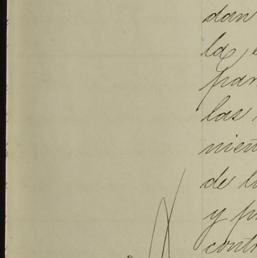 dan
la
par
las
mien
de l
y p
contr